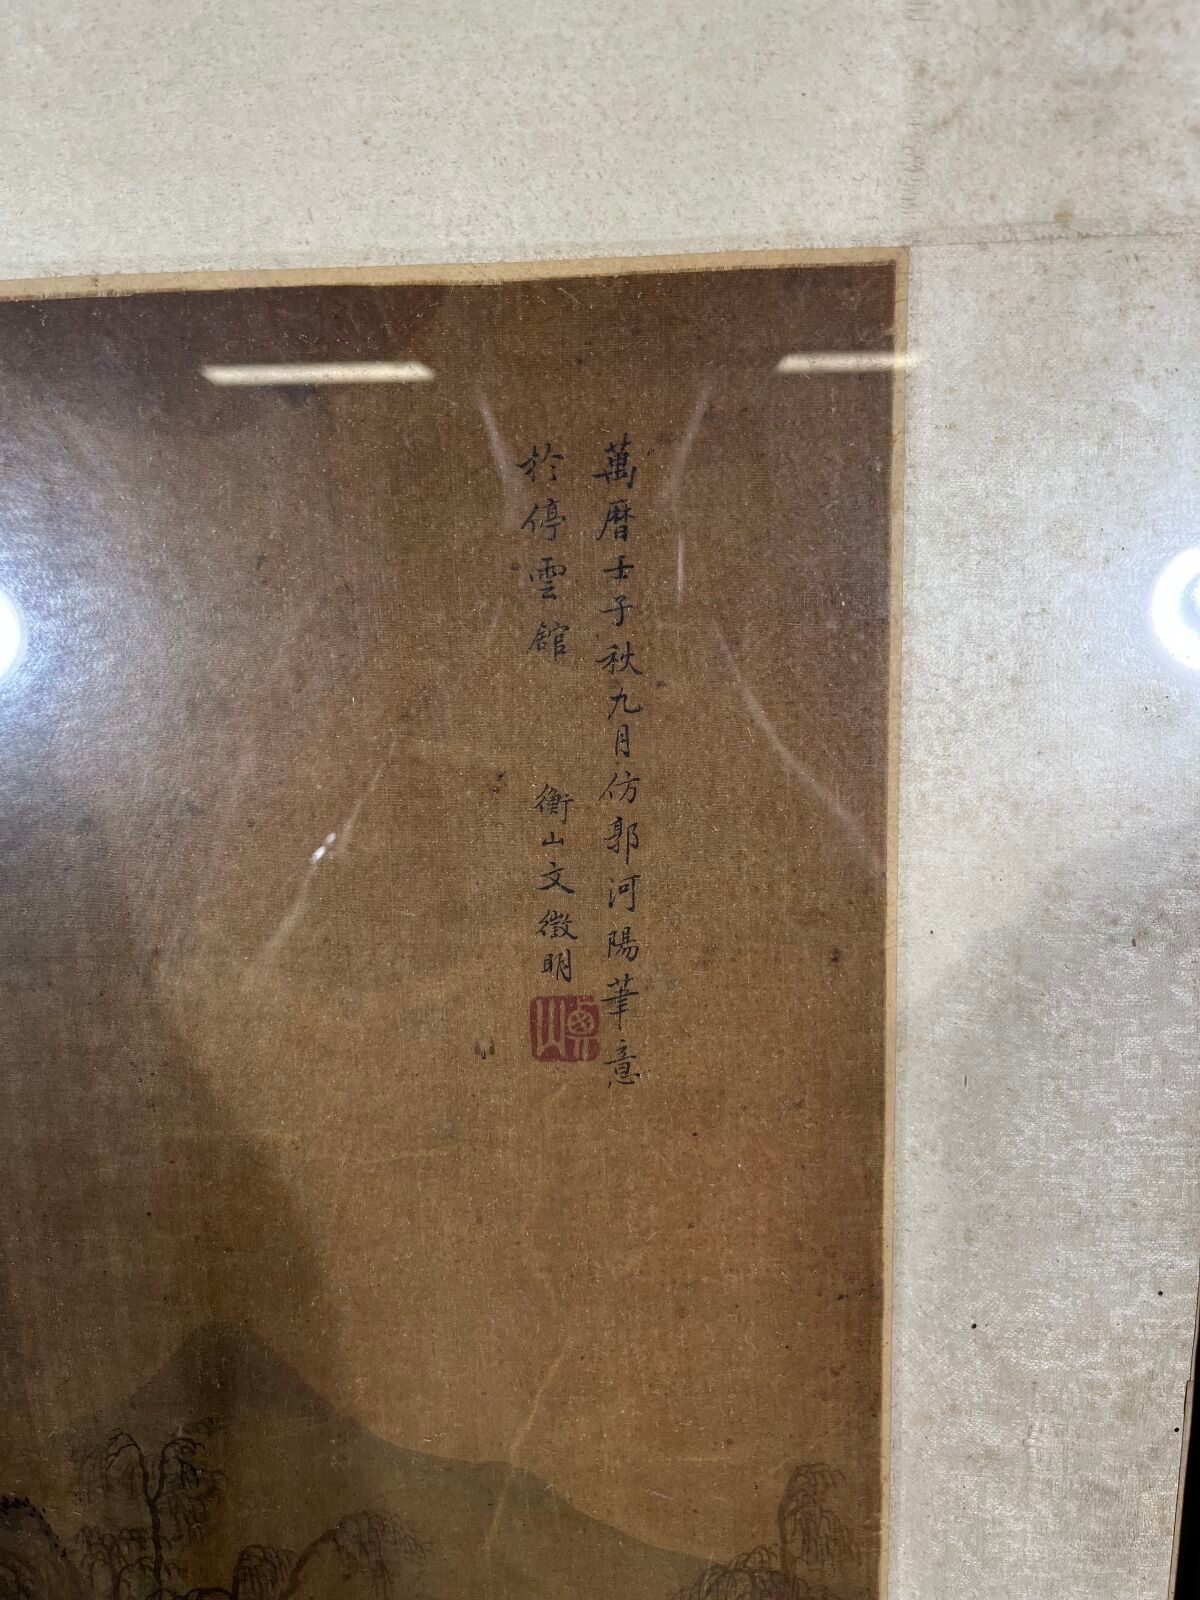 萬曆壬子秋九月仿郭河陽筆意
於停雲舘
衡山文徵明